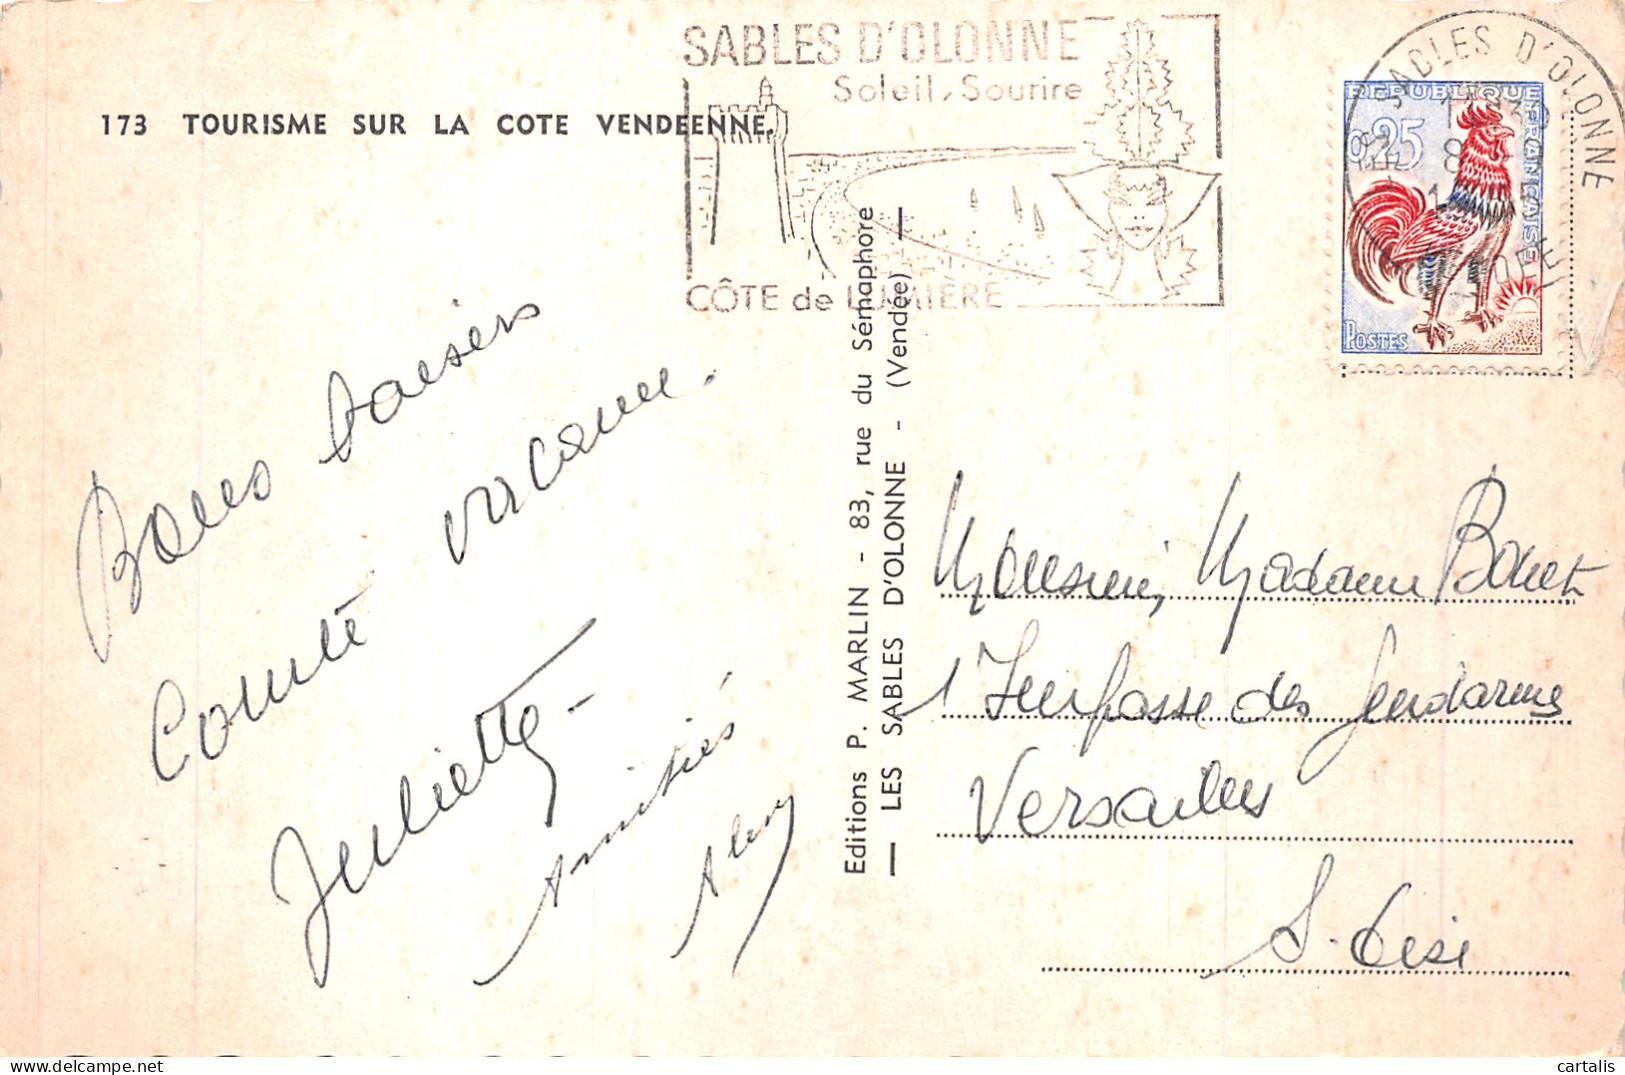 SABLES D'OLONNE
Soleil, Sourire
CÔTE de LUMIÈRE
SABLES D'OLONNE
VENDEE
REPUBLIQUE FRANÇAISE
0,25
POSTES
173 TOURISME SUR LA COTE VENDÉENNE.
Bons baisers
Comité vacanc.
Juliette -
Amitiés
Editions P. MARLIN - 83, rue du Sémaphore
— LES SABLES D'OLONNE - (Vendée) —
Monsieur, Madame Bonet
1 Impasse des Gendarmes
Versailles
S. Oise
cartalis